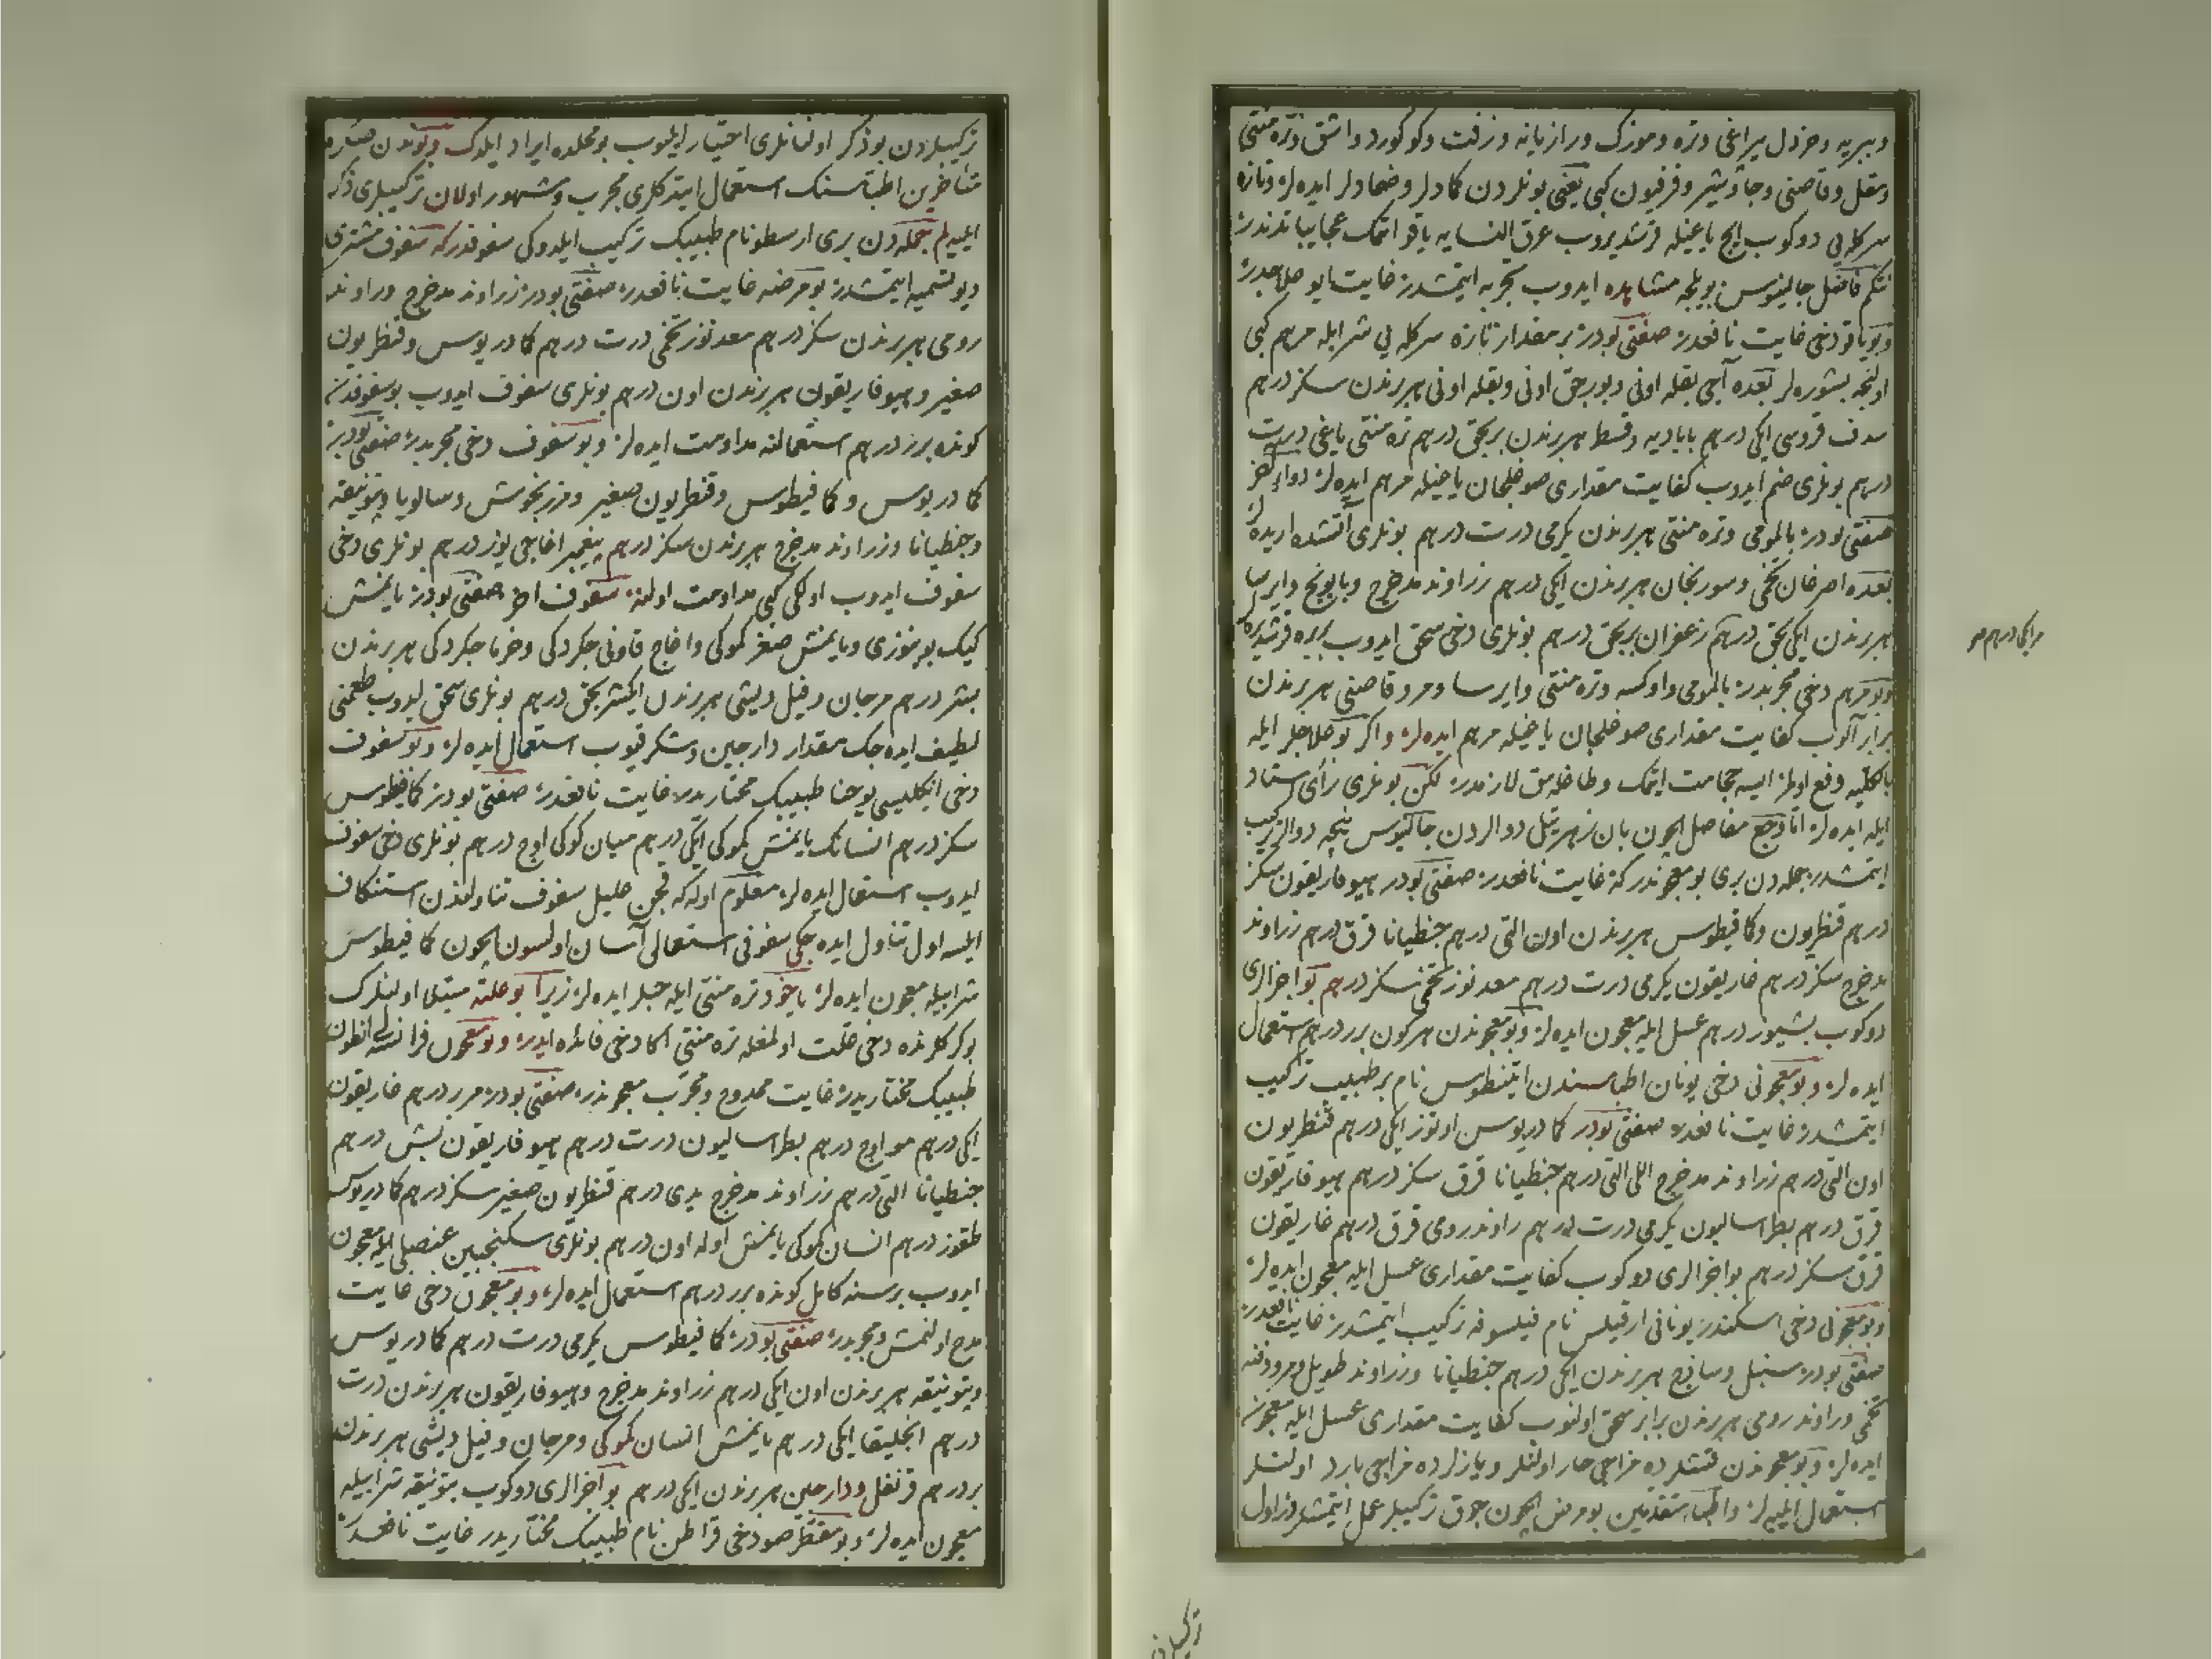 وبیریه وخردل یراغی وتره وموزک ورازیانه وزفت وکوکورد واشق وتره منتی
ومقل وقاصنی وجاوشیر وفرفیون کبی یعنی بونلردن کمادلر وضمادلر ایده لر وتازه
سرکله یی دوکوب ایچ یاغیله قرشدیروب عرق النسایه یاقو اتمک عجایباتدندر
نتکم فاضل جالینوس بویله مشاهده ایدوب تجربه ایتمشدر غایت ایو علاجدر
وبو یاقو دخی غایت نافعدر صفتی بودر بر مقدار تازه سرکله یی شراب ایله مرهم کبی
اولنجه بشوره لر بعده آجی بقله اونی وبورجق اونی وبقله اونی هر برندن سکز درهم
قروسی ایکی درهم بابادیه وقسط هر برندن بر بچق درهم تره منتی یاغی درت
درهم بونلری ضم ایدوب کفایت مقداری صوغلجان یاغیله مرهم ایده لر دواء آخر
صفتی بودر بالمومی وتره منتی هر برندن یکرمی درت درهم بونلری آتشده اریده لر
بعده تخمی وسورنجان هر برندن ایکی درهم زراوند مدحرج وبابونج وایرسا
هر برندن ایکی بچق درهم زعفران بر بچق درهم بونلری دخی سحق ایدوب بریره قرشدیره لر
وبو مرهم دخی مجربدر بالمومی واوکسه وتره منتی وایرسا ومر وقاصنی هر برندن
برابر آلوب کفایت مقداری صوغلجان یاغیله مرهم ایده لر واکر بو علاجلر ایله
بالکلیه دفع اولمز ایسه حجامت اتمک وطاغلامق لازمدر لکن بونلری رأی استاد
ایله ایده لر اما وجع مفاصل ایچون بان زهر یتیل دوالردن جالینوس نیجه دوالر ترکیب
ایتمشدر جمله دن بری بو معجوندر که غایت نافعدر صفتی بودر هیوفاریقون سکز
درهم قنطریون وکمافیطوس هر برندن اون التی درهم جنطیانا قرق درهم زراوند
مدحرج سکز درهم غاریقون یکرمی درت درهم معدنوز تخمی سکز درهم بو اجزالری
دوکوب بشیوز درهم عسل ایله معجون ایده لر وبو معجوندن هر کون بر درهم استعمال
ایده لر وبو معجونی دخی یونان اطباسندن نام بر طبیب ترکیب
ایتمشدر غایت نافعدر صفتی بودر کمادریوس اوتوز ایکی درهم قنطریون
اون التی درهم زراوند مدحرج اللی التی درهم جنطیانا قرق سکز درهم هیوفاریقون
قرق درهم بطراسالیون یکرمی درت درهم راوند رومی قرق درهم غاریقون
قرق سکز درهم بو اجزالری دوکوب کفایت مقداری عسل ایله معجون ایده لر
وبو معجونی دخی اسکندر یونانی ارقیلس نام فیلسوفه ترکیب ایتمشدر غایت نافعدر
صفتی بودر سنبل وساذج هر برندن ایکی درهم جنطیانا وزراوند طویل ومر
تخمی وراوند رومی هر برندن برابر سحق اولنوب کفایت مقداری عسل ایله معجون
ایده لر وبو معجوندن قشلرده مزاجی حار اولنلر ویازلرده مزاجی بارد اولنلر
استعمال ایلیه لر واطباء متقدمین بو مرض ایچون چوق ترکیبلر عمل ایتمشلردر اول
ترکیبلردن
ترکیبلردن بو ذکر اولنانلری اختیار ایلیوب بو محلده ایراد ایلدک وبوندن صکره
متأخرین اطباسنک استعمال ایتدکلری مجرب ومشهور اولان ترکیبلری ذکر
ایلیه لم جمله دن بری ارسطو نام طبیبک ترکیب ایلدوکی سفوفدر که سفوف مشتری
دیو تسمیه ایتمشدر بو مرضه غایت نافعدر صفتی بودر زراوند مدحرج وراوند
رومی هر برندن سکز درهم معدنوز تخمی درت درهم کمادریوس وقنطریون
صغیر وهیوفاریقون هر برندن اون درهم بونلری سفوف ایدوب بو سفوفدن
کونده برر درهم استعمالنه مداومت ایده لر وبو سفوف دخی مجربدر صفتی بودر
کمادریوس وکمافیطوس وقنطریون صغیر ومرزنجوش وسالویا وبتونیقه
وجنطیانا وزراوند مدحرج هر برندن سکز درهم پیغمبر اغاجی یوز درهم بونلری دخی
سفوف ایدوب اولکی کبی مداومت اولنه سفوف اخر صفتی بودر یانمش
کیک بوینوزی ویانمش صغر کموکی واغاج قاونی جکردکی وخرما جکردکی هر برندن
بشر درهم مرجان وفیل دیشی هر برندن ایکیشر بچق درهم بونلری سحق ایدوب طعمنی
لطیف ایده جک مقدار دارجین وشکر قیوب استعمال ایده لر وبو سفوف
دخی انکلیسی یوحنا طبیبک مختاریدر غایت نافعدر صفتی بودر کمافیطوس
سکز درهم انسانک یانمش کموکی ایکی درهم میان کوکی اوچ درهم بونلری دخی سفوف
ایدوب استعمال ایده لر معلوم اوله که قچن علیل سفوف تناولندن استنکاف
ایلسه اول تناول ایده جکی سفوفی استعمالی آسان اولسون ایچون کمافیطوس
شرابیله معجون ایده لر یاخود تره منتی ایله حبلر ایده لر زیرا بو علته مبتلا اولنلرک
بوکرکلرنده دخی علت اولمغله تره منتی اکا دخی فائده ایدر وبو معجون فرانسه لی انطون
طبیبک مختاریدر غایت ممدوح ومجرب معجوندر صفتی بودر مر بر درهم غاریقون
ایکی درهم مو اوچ درهم بطراسالیون درت درهم هیوفاریقون بش درهم
جنطیانا التی درهم زراوند مدحرج یدی درهم قنطریون صغیر سکز درهم کمادریوس
طقوز درهم انسان کموکی یانمش اوله اون درهم بونلری سکنجبین عنصلی ایله معجون
ایدوب بر سنه کامل کونده برر درهم استعمال ایده لر وبو معجون دخی غایت
مدح اولنمش ومجربدر صفتی بودر کمافیطوس یکرمی درت درهم کمادریوس
وبتونیقه هر برندن اون ایکی درهم زراوند مدحرج وهیوفاریقون هر برندن درت
درهم انجلیقا ایکی درهم یانمش انسان کموکی ومرجان وفیل دیشی هر برندن
بر درهم قرنفل ودارجین هر برندن ایکی درهم بو اجزالری دوکوب بتونیقه شرابیله
معجون ایده لر وبو مقطر صو دخی قراطن نام طبیبک مختاریدر غایت نافعدر